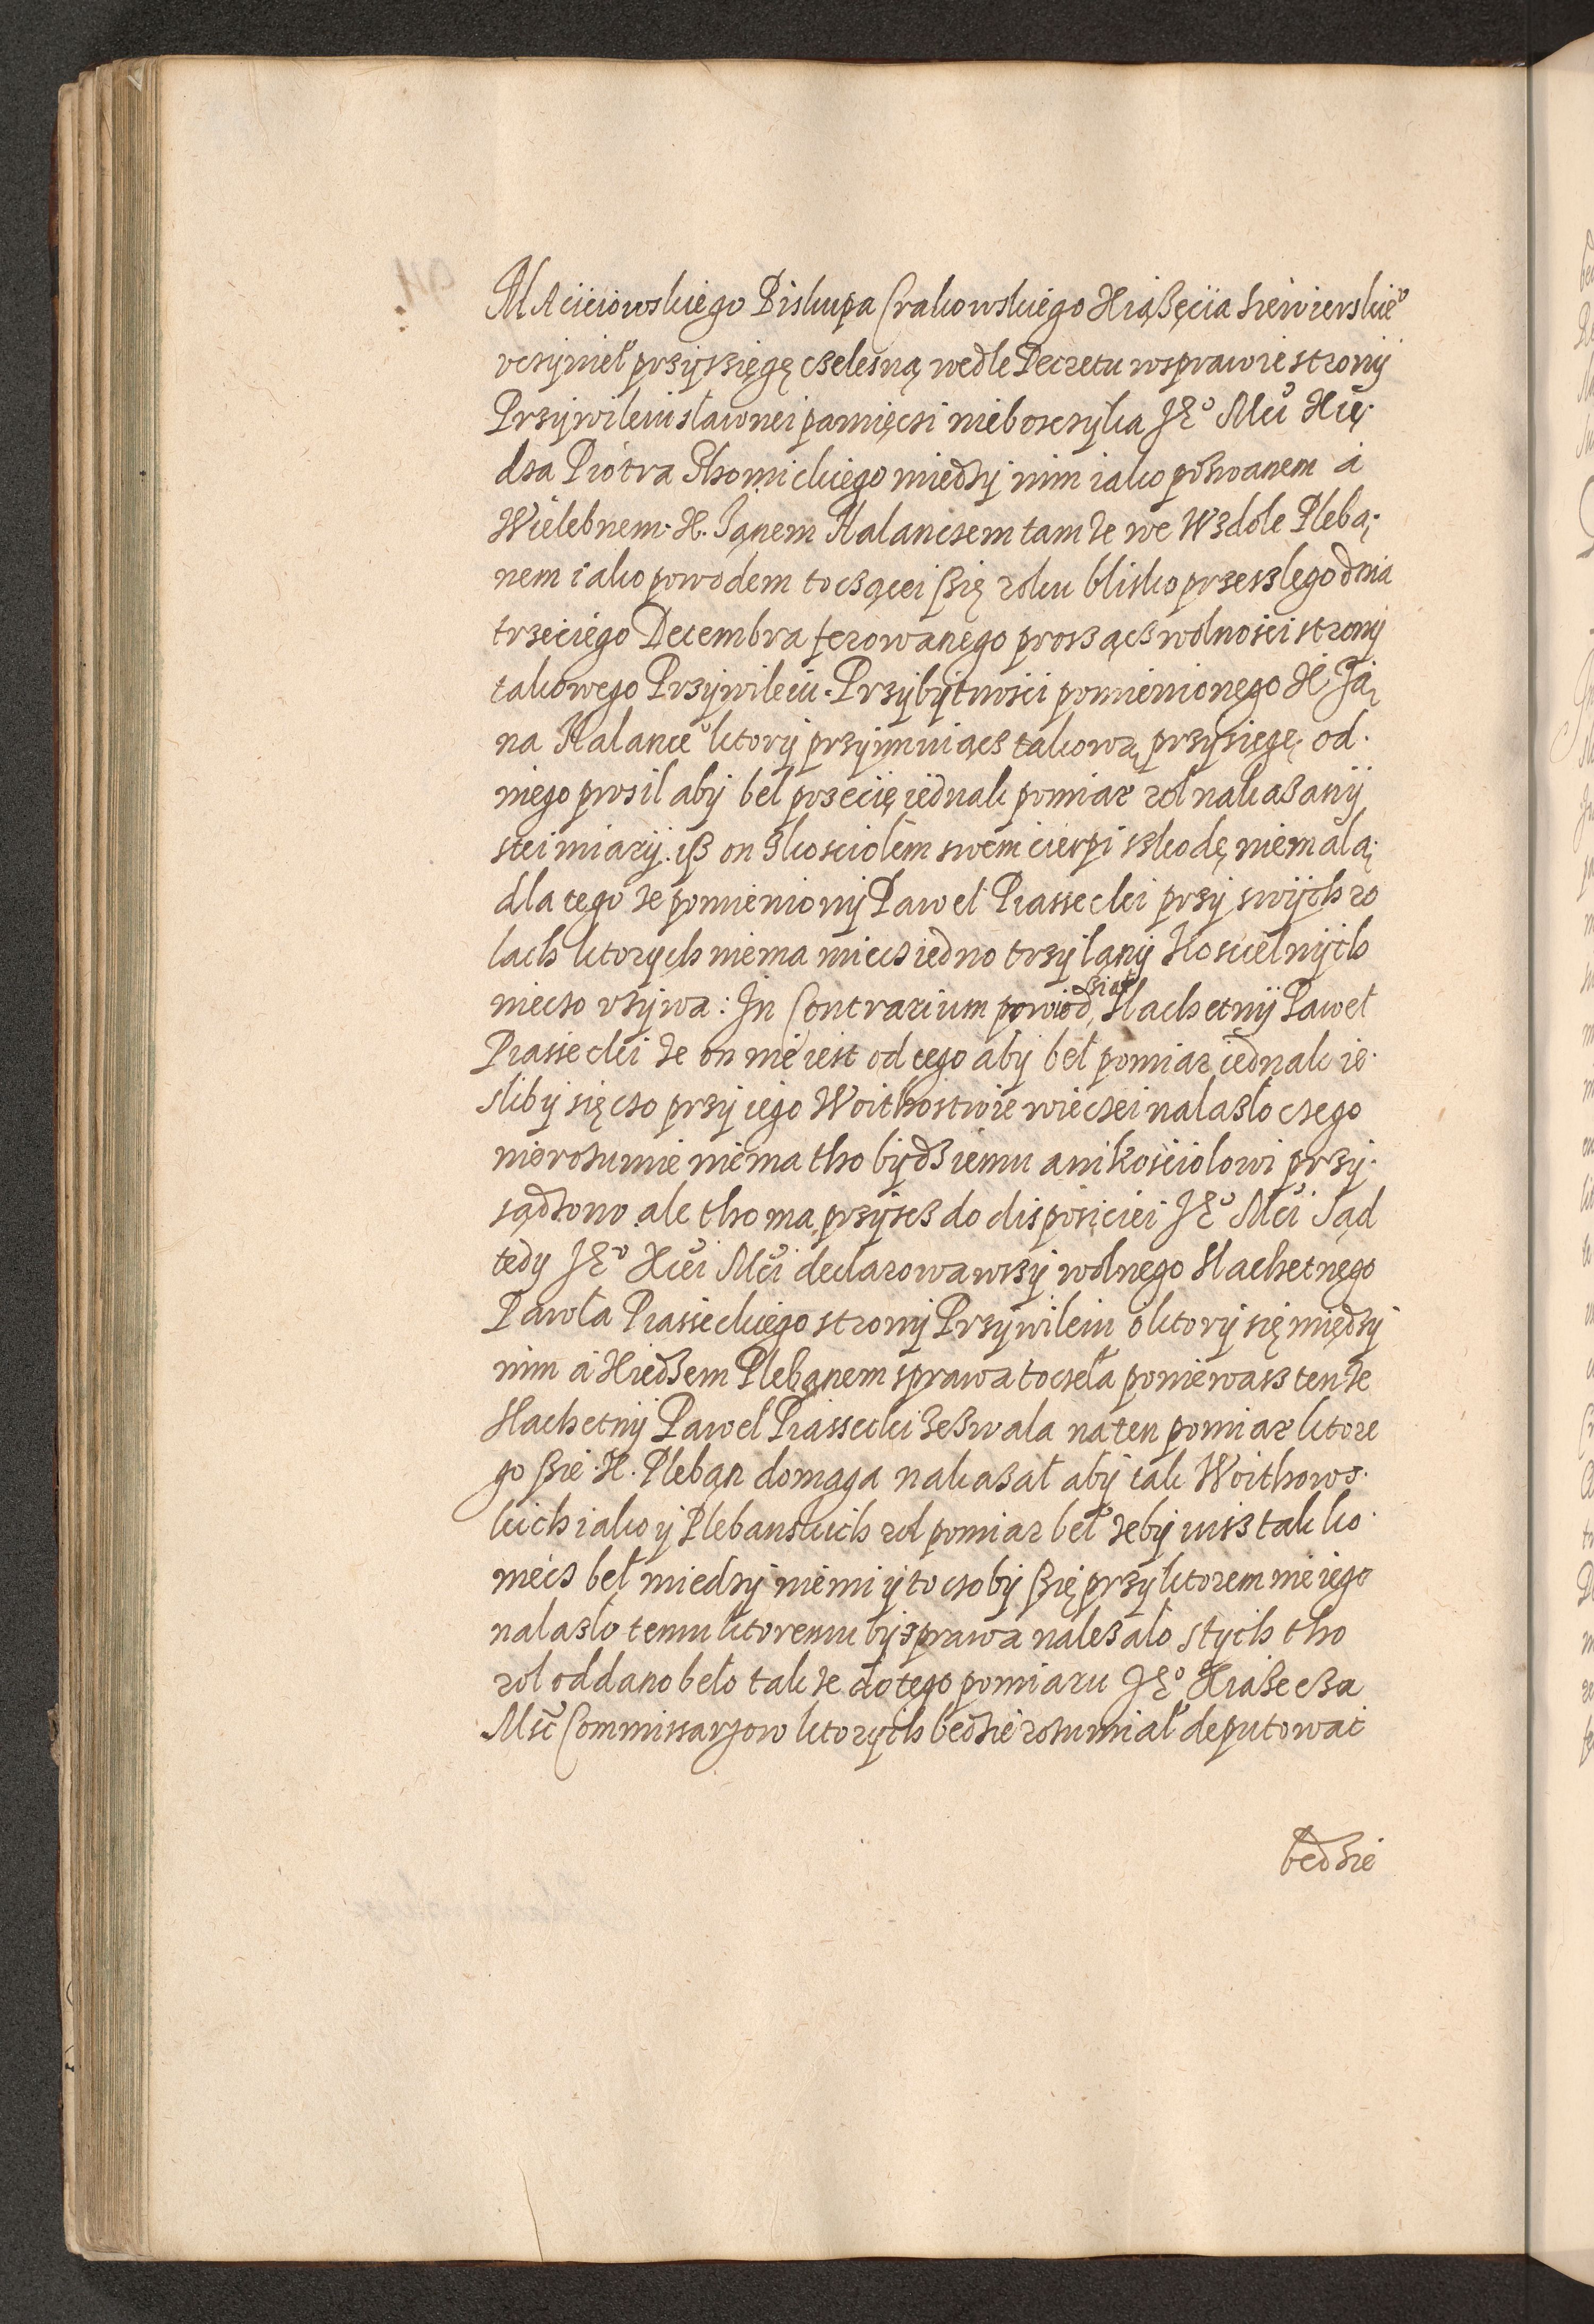 MAcieiowskiego Biskupa Crakowskiego Xiąßęcia Siewierskie°
vcsynieł przysięgę czelesną wedle Decretu wsprawie strony
Przywileiu sławnei pamięci nieboscsyka JE° Mći Xię·
dza Piotra Thomickiego miedzy nim iako poswanem a
Wielebnem X. Janem Kalanczem tamże we Wzdole Pleba·
nem iako powodem toczącei ßię roku blisko przeszlego dnia
trzeciego Decembra ferowanego prosząncz wolności strony
takowego Przywileiu. Przybytności pomienionego X. Ja
na Kalance° ktory przyimuiącz takową przysięgę od·
niego prosil aby bel przecię iednak pomiar rol nakazany
stei miary. yß on Skosciolem swem cierpi szkodę niemalą
dla tego że pomieniony Paweł Piassecki przy swych ro
lach ktorych niema miecz iedno trzy lany Kościelnych
nieczo vżywa: In Contrarium powiedział Slachetny Paweł
Piassecki że on nie iest od tego aby beł pomiar iednak ie·
sliby się czo przy iego Woithostwie wieczei nalazlo czego
nierozumie niema tho bydź iemu ani kościolowi przy·
sądzono ale tho ma przyscz do disposiciei JE° Mći Sąd
tedy JE° Xćei Mći declarowawszy wolnego Slachetnego
Pawła Piasseckiego strony Przywileiu o ktory się między
nim a Xiedzem Plebanem sprawa toczeła poniewasz tenże
Slachetny Pawel Piassecki zezwala na ten pomiar ktore
go ßie X. Pleban domaga nakazał aby tak Woithows·
kich iako y Plebanskich rol pomiar beł żeby iusz tak ko·
niecz beł miedzy niemi y to czoby ßię przy ktorem nie iego
nalazlo temu ktoremu by zprawa nalezało stych tho
rol oddano beło także do tego pomiaru JE° Xiażecza
Mść Commissarzow ktorych bedzie rozumiał deputowac
bedzie